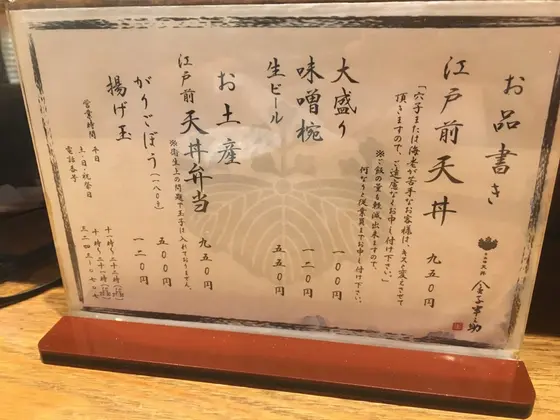 お品書き
日本橋 天丼 金子半之助
江戸前天丼 九五〇円
「穴子または海老が苦手なお客様は、キスに変えさせて
頂きますので、ご遠慮なくお申し付け下さい。」
※ご飯の量も軽減出来ますので、
何なりと従業員までお申し付け下さい。
大盛り 一〇〇円
味噌椀 一二〇円
生ビール 五五〇円
お土産
江戸前天丼弁当 九五〇円
※衛生上の問題で玉子は入れておりません。
がりごぼう(一八〇g) 五五〇円
揚げ玉 一二〇円
営業時間 平日
土・日・祝祭日
電話番号 三二四三-〇七〇七